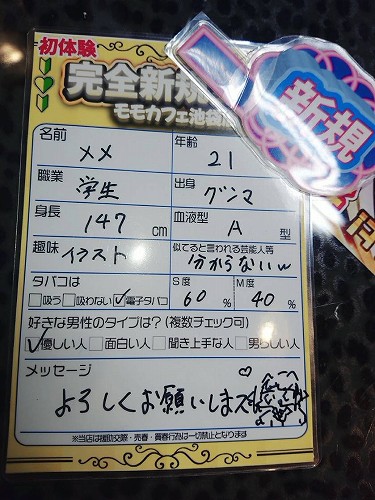 初体験
完全新規
モモカフェ池袋
新規
名前 メメ 年齢 21
職業 学生 出身 グンマ
身長 147 cm 血液型 A 型
趣味 イラスト 似てると言われる芸能人等 分からないw
タバコは S度 M度
□吸う □吸わない ☑電子タバコ 60 % 40 %
好きな男性のタイプは?(複数チェック可)
☑優しい人 □面白い人 □聞き上手な人 □男らしい人
メッセージ
よろしくお願いします♡
※当店は援助交際・売春・買春行為は一切禁止となります